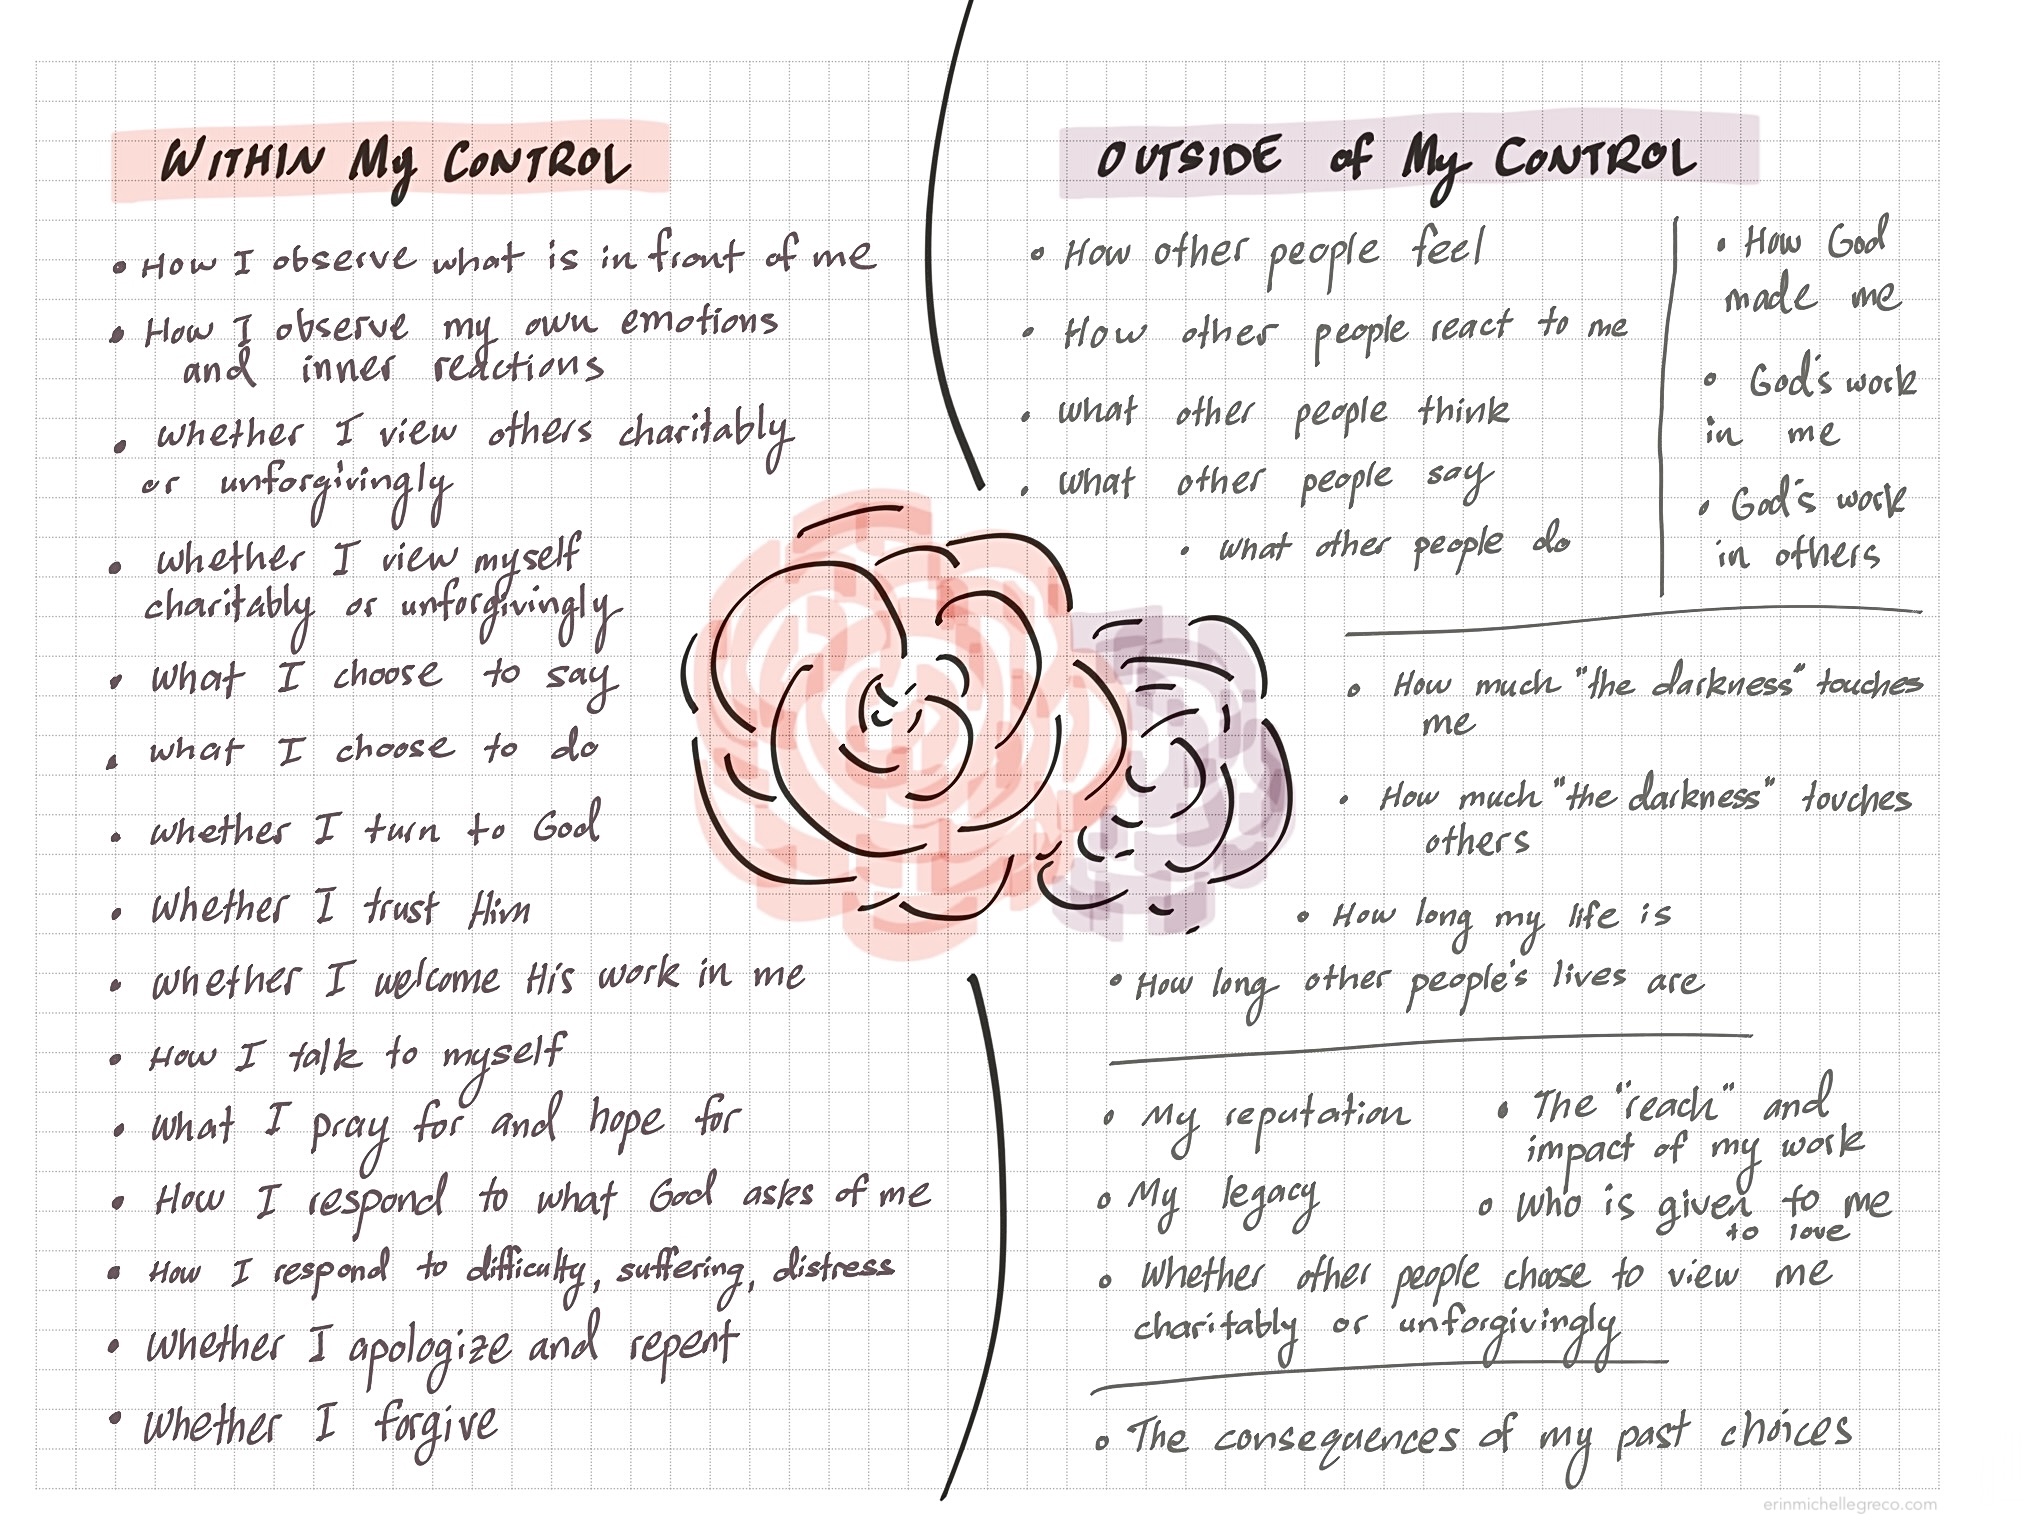 WITHIN My CONTROL
• How I observe what is in front of me
• How I observe my own emotions
and inner reactions
• Whether I view others charitably
or unforgivingly
• Whether I view myself
charitably or unforgivingly
• What I choose to say
• What I choose to do
• Whether I turn to God
• Whether I trust Him
• Whether I welcome His work in me
• How I talk to myself
• What I pray for and hope for
• How I respond to what God asks of me
• How I respond to difficulty, suffering, distress
• Whether I apologize and repent
• Whether I forgive
OUTSIDE of My CONTROL
• How other people feel
• How other people react to me
• What other people think
• What other people say
• What other people do
• How God
made me
• God's work
in me
• God's work
in others
• How much "the darkness" touches
me
• How much "the darkness" touches
others
• How long my life is
• How long other people's lives are
• My reputation
• My legacy
• The "reach" and
impact of my work
• Who is given to me
to love
• Whether other people choose to view me
charitably or unforgivingly
• The consequences of my past choices
erinmichellegreco.com